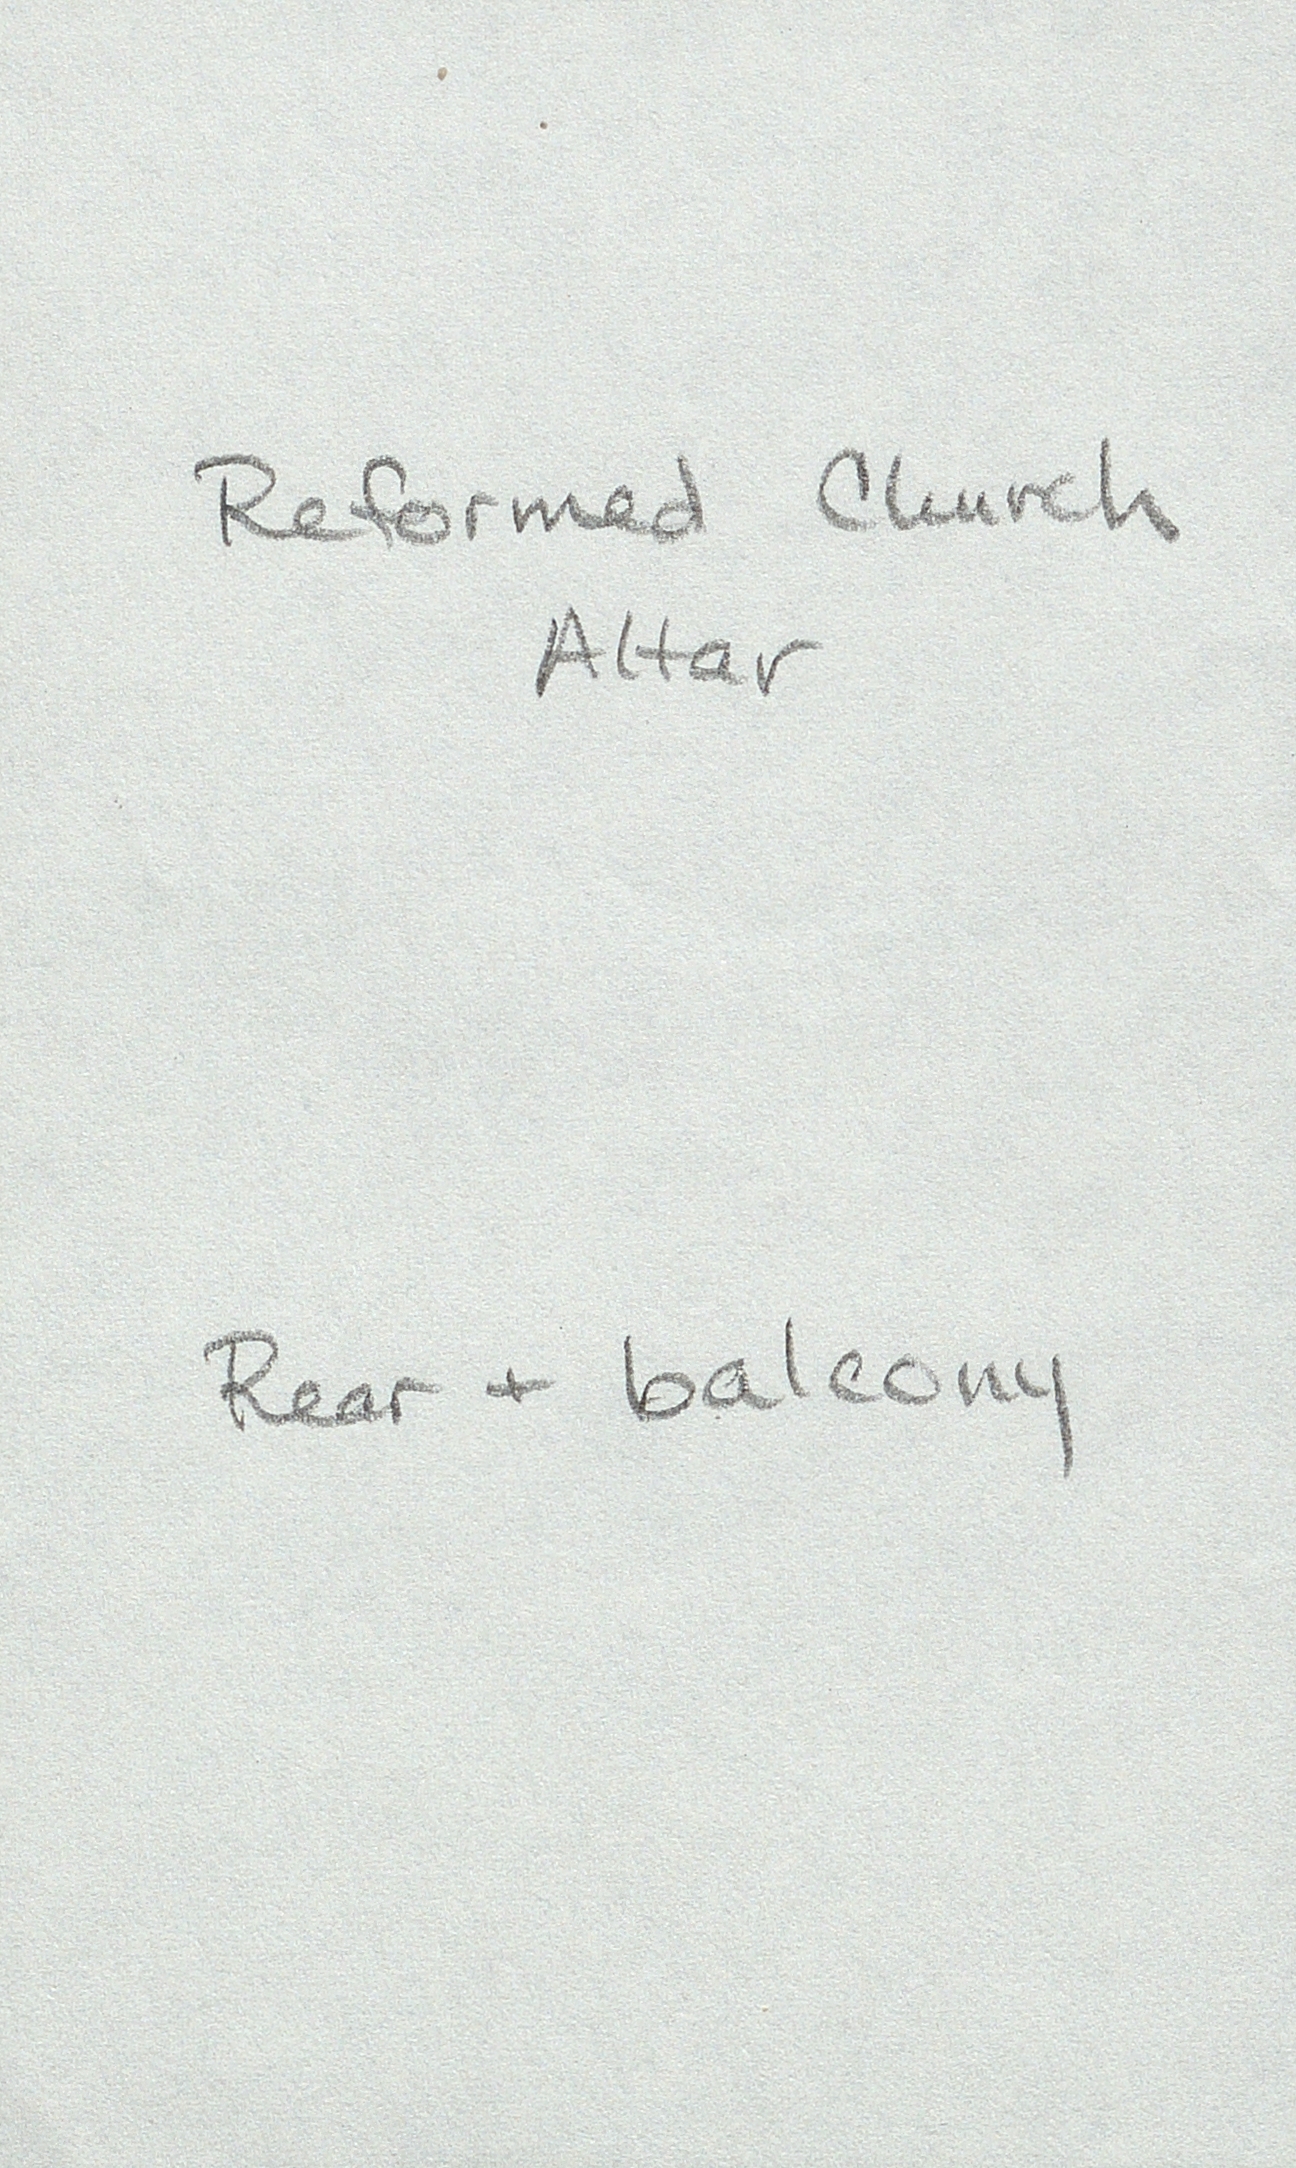 Reformed Church
Altar
Rear + balcony